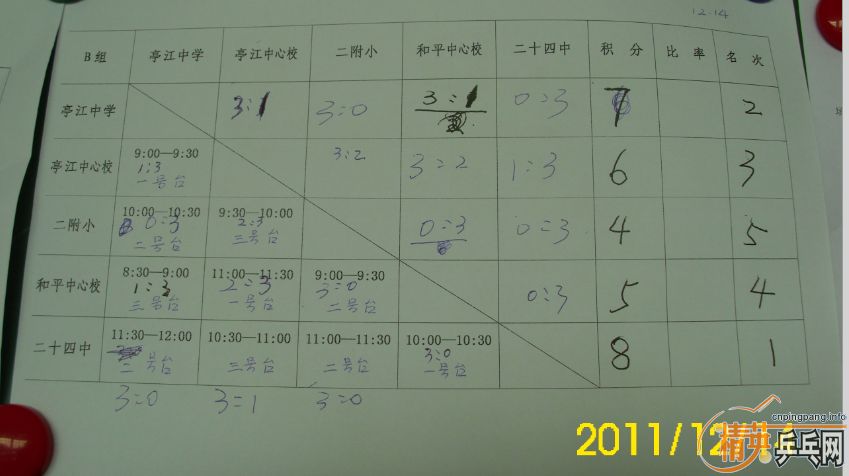 12.14
B组 亭江中学 亭江中心校 二附小 和平中心校 二十四中 积 分 比 率 名 次
亭江中学 3:1 3:0 3:1 0:3 7 2
亭江中心校 9:00—9:30 3:2 3:2 1:3 6 3
1:3
一号台
二附小 10:00—10:30 9:30—10:00 0:3 0:3 4 5
0:3 2:3
二号台 三号台
和平中心校 8:30—9:00 11:00—11:30 9:00—9:30 0:3 5 4
1:3 2:3 3:0
三号台 一号台 二号台
二十四中 11:30—12:00 10:30—11:00 11:00—11:30 10:00—10:30 8 1
3:0
二号台 三号台 二号台 一号台
3:0 3:1 3:0
2011/12/14
cnpingpang.info
精英乒乓网